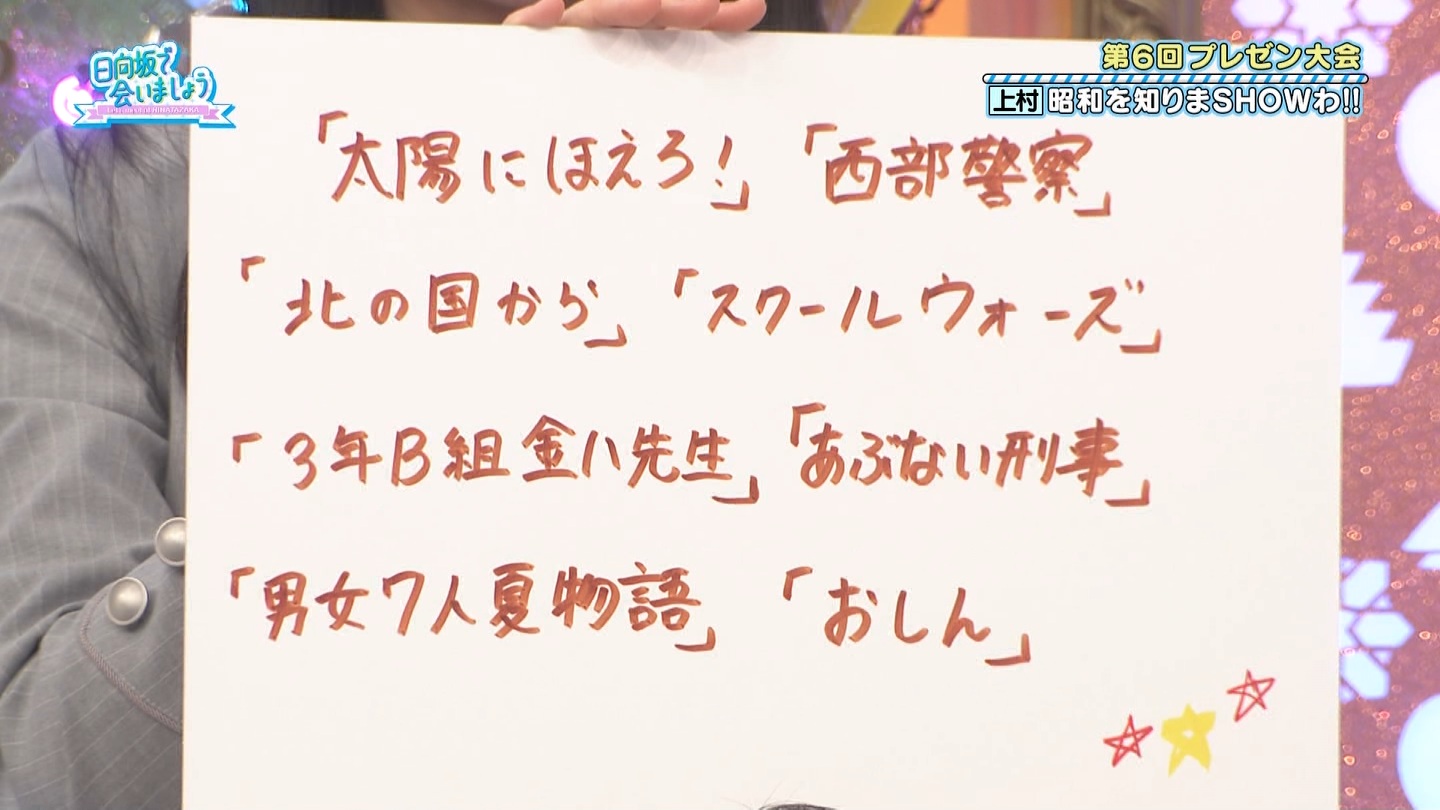 日向坂で
会いましょう
第6回プレゼン大会
上村 昭和を知りまSHOWわ!!
「太陽にほえろ!」「西部警察」
「北の国から」「スクールウォーズ」
「3年B組金八先生」「あぶない刑事」
「男女7人夏物語」「おしん」